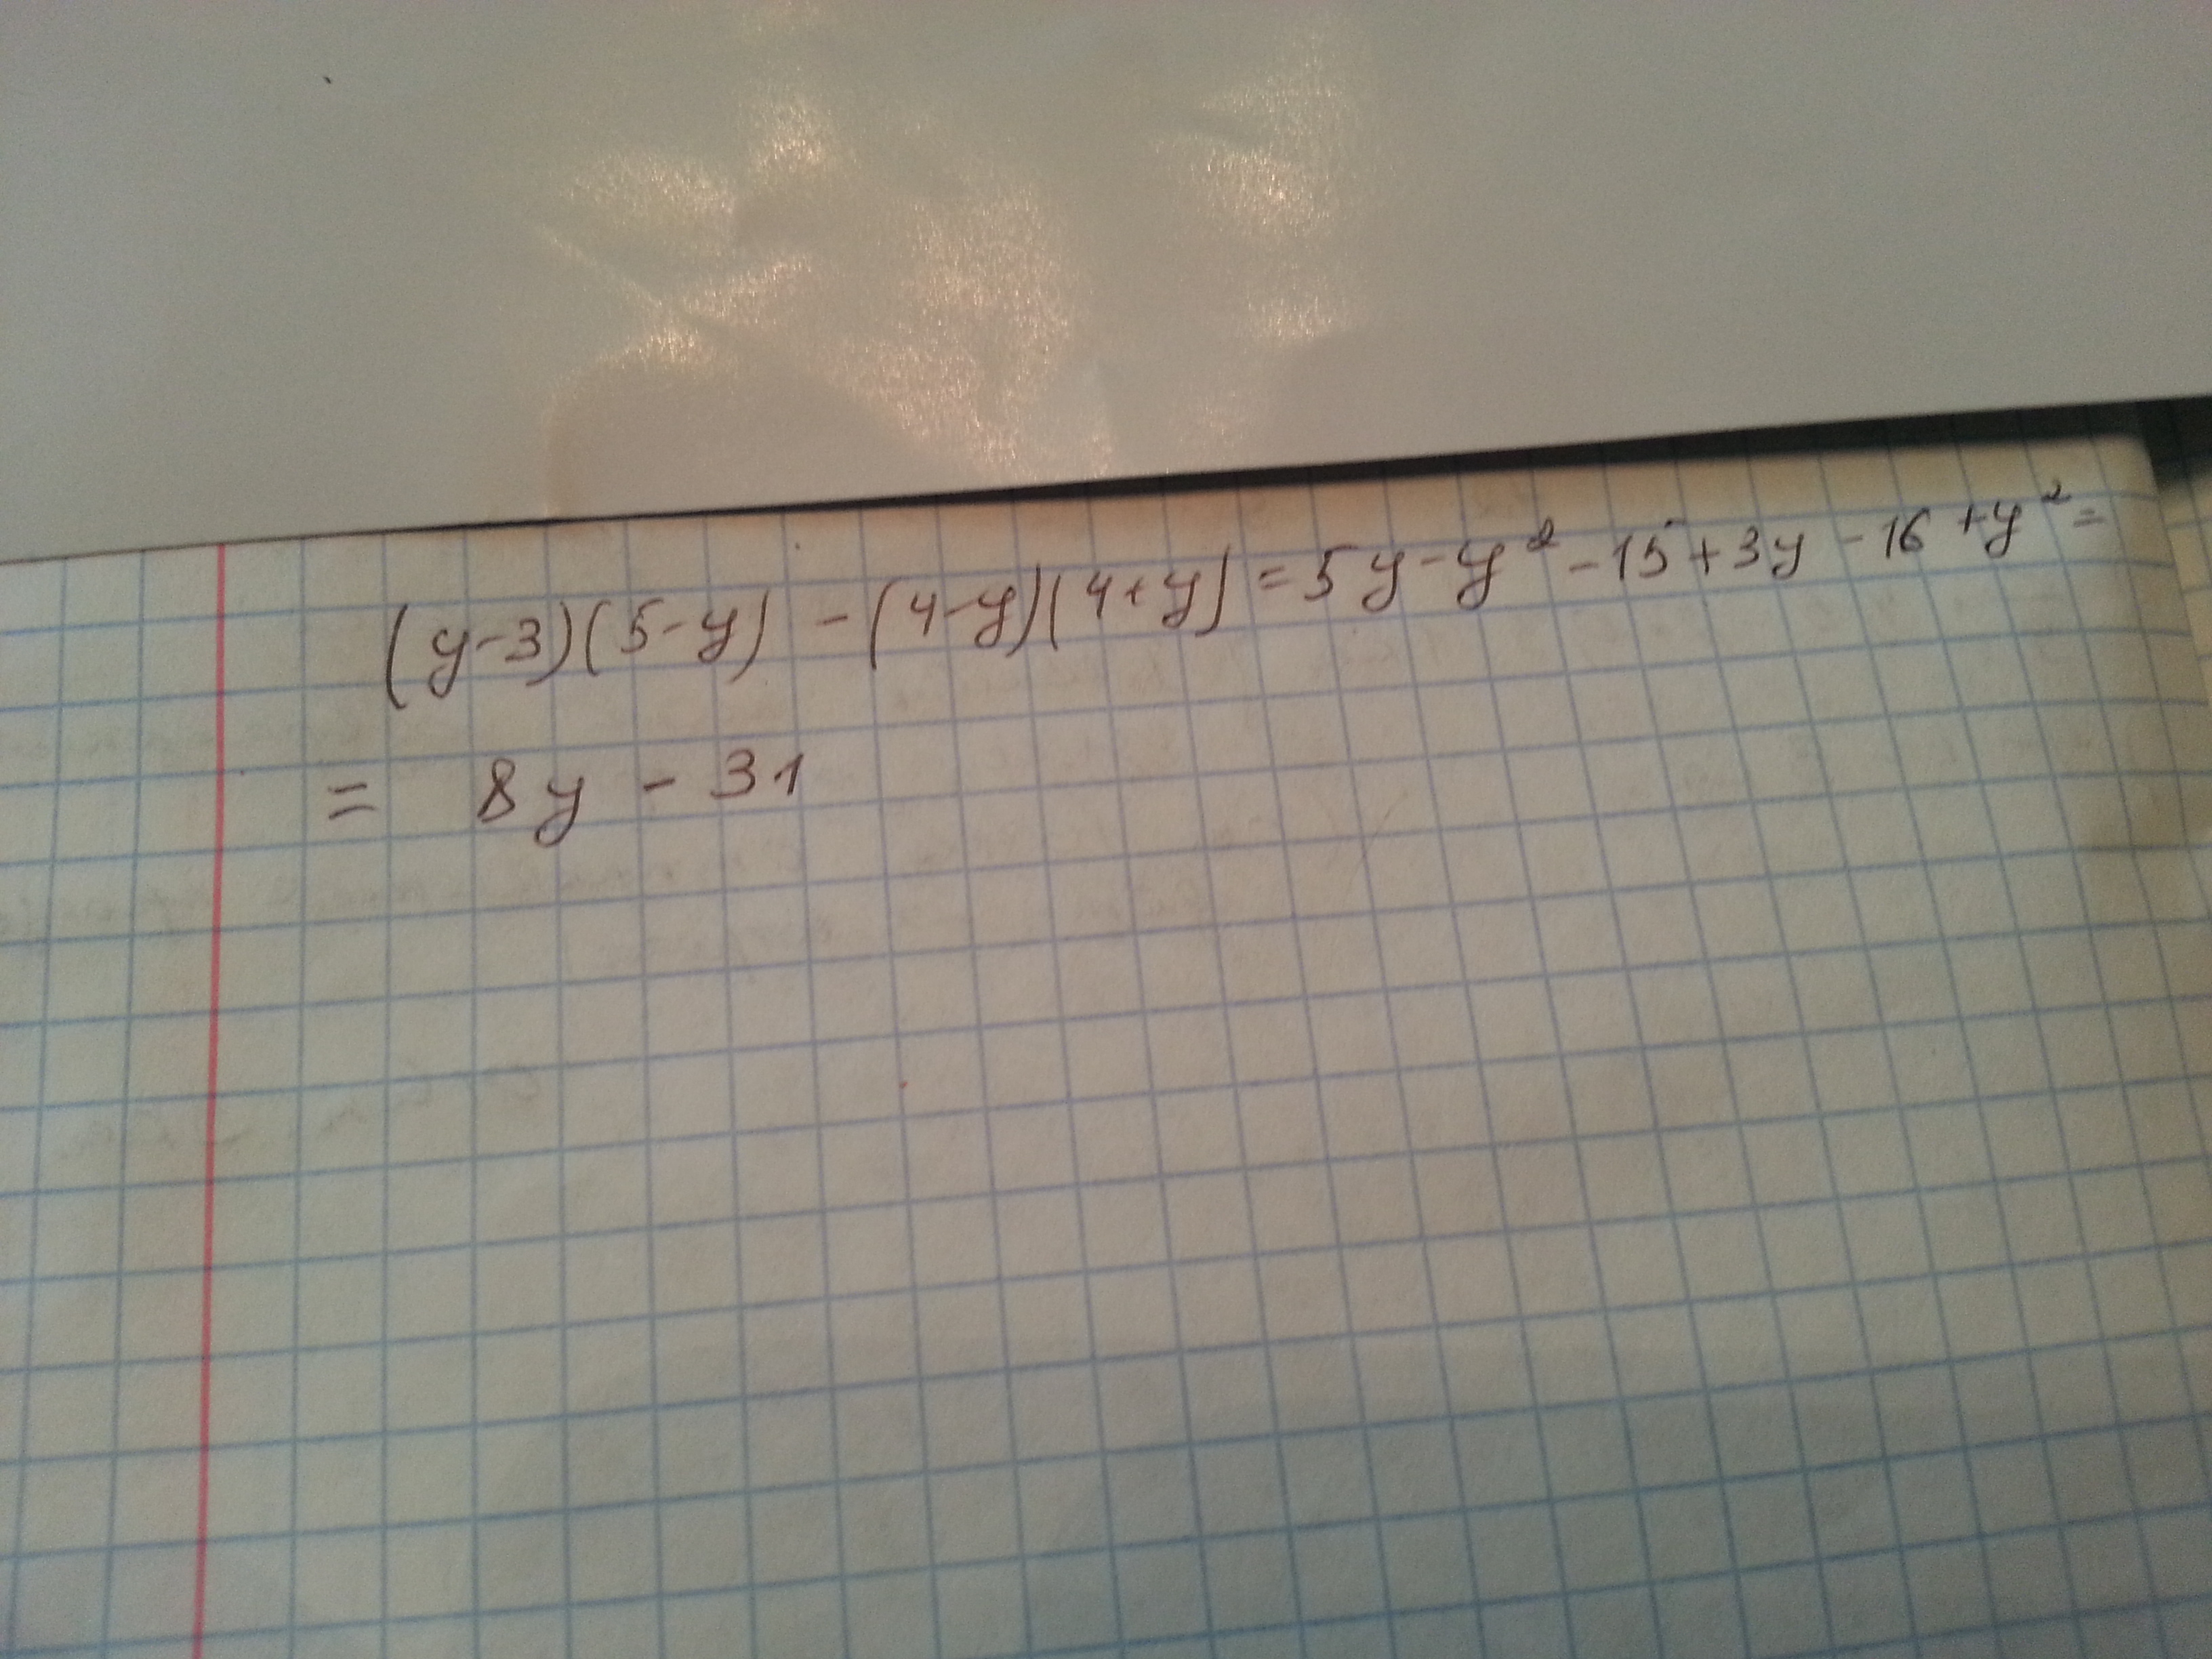 (y-3)(5-y) - (4-y)(4+y) = 5y - y² - 15 + 3y - 16 + y² =
= 8y - 31